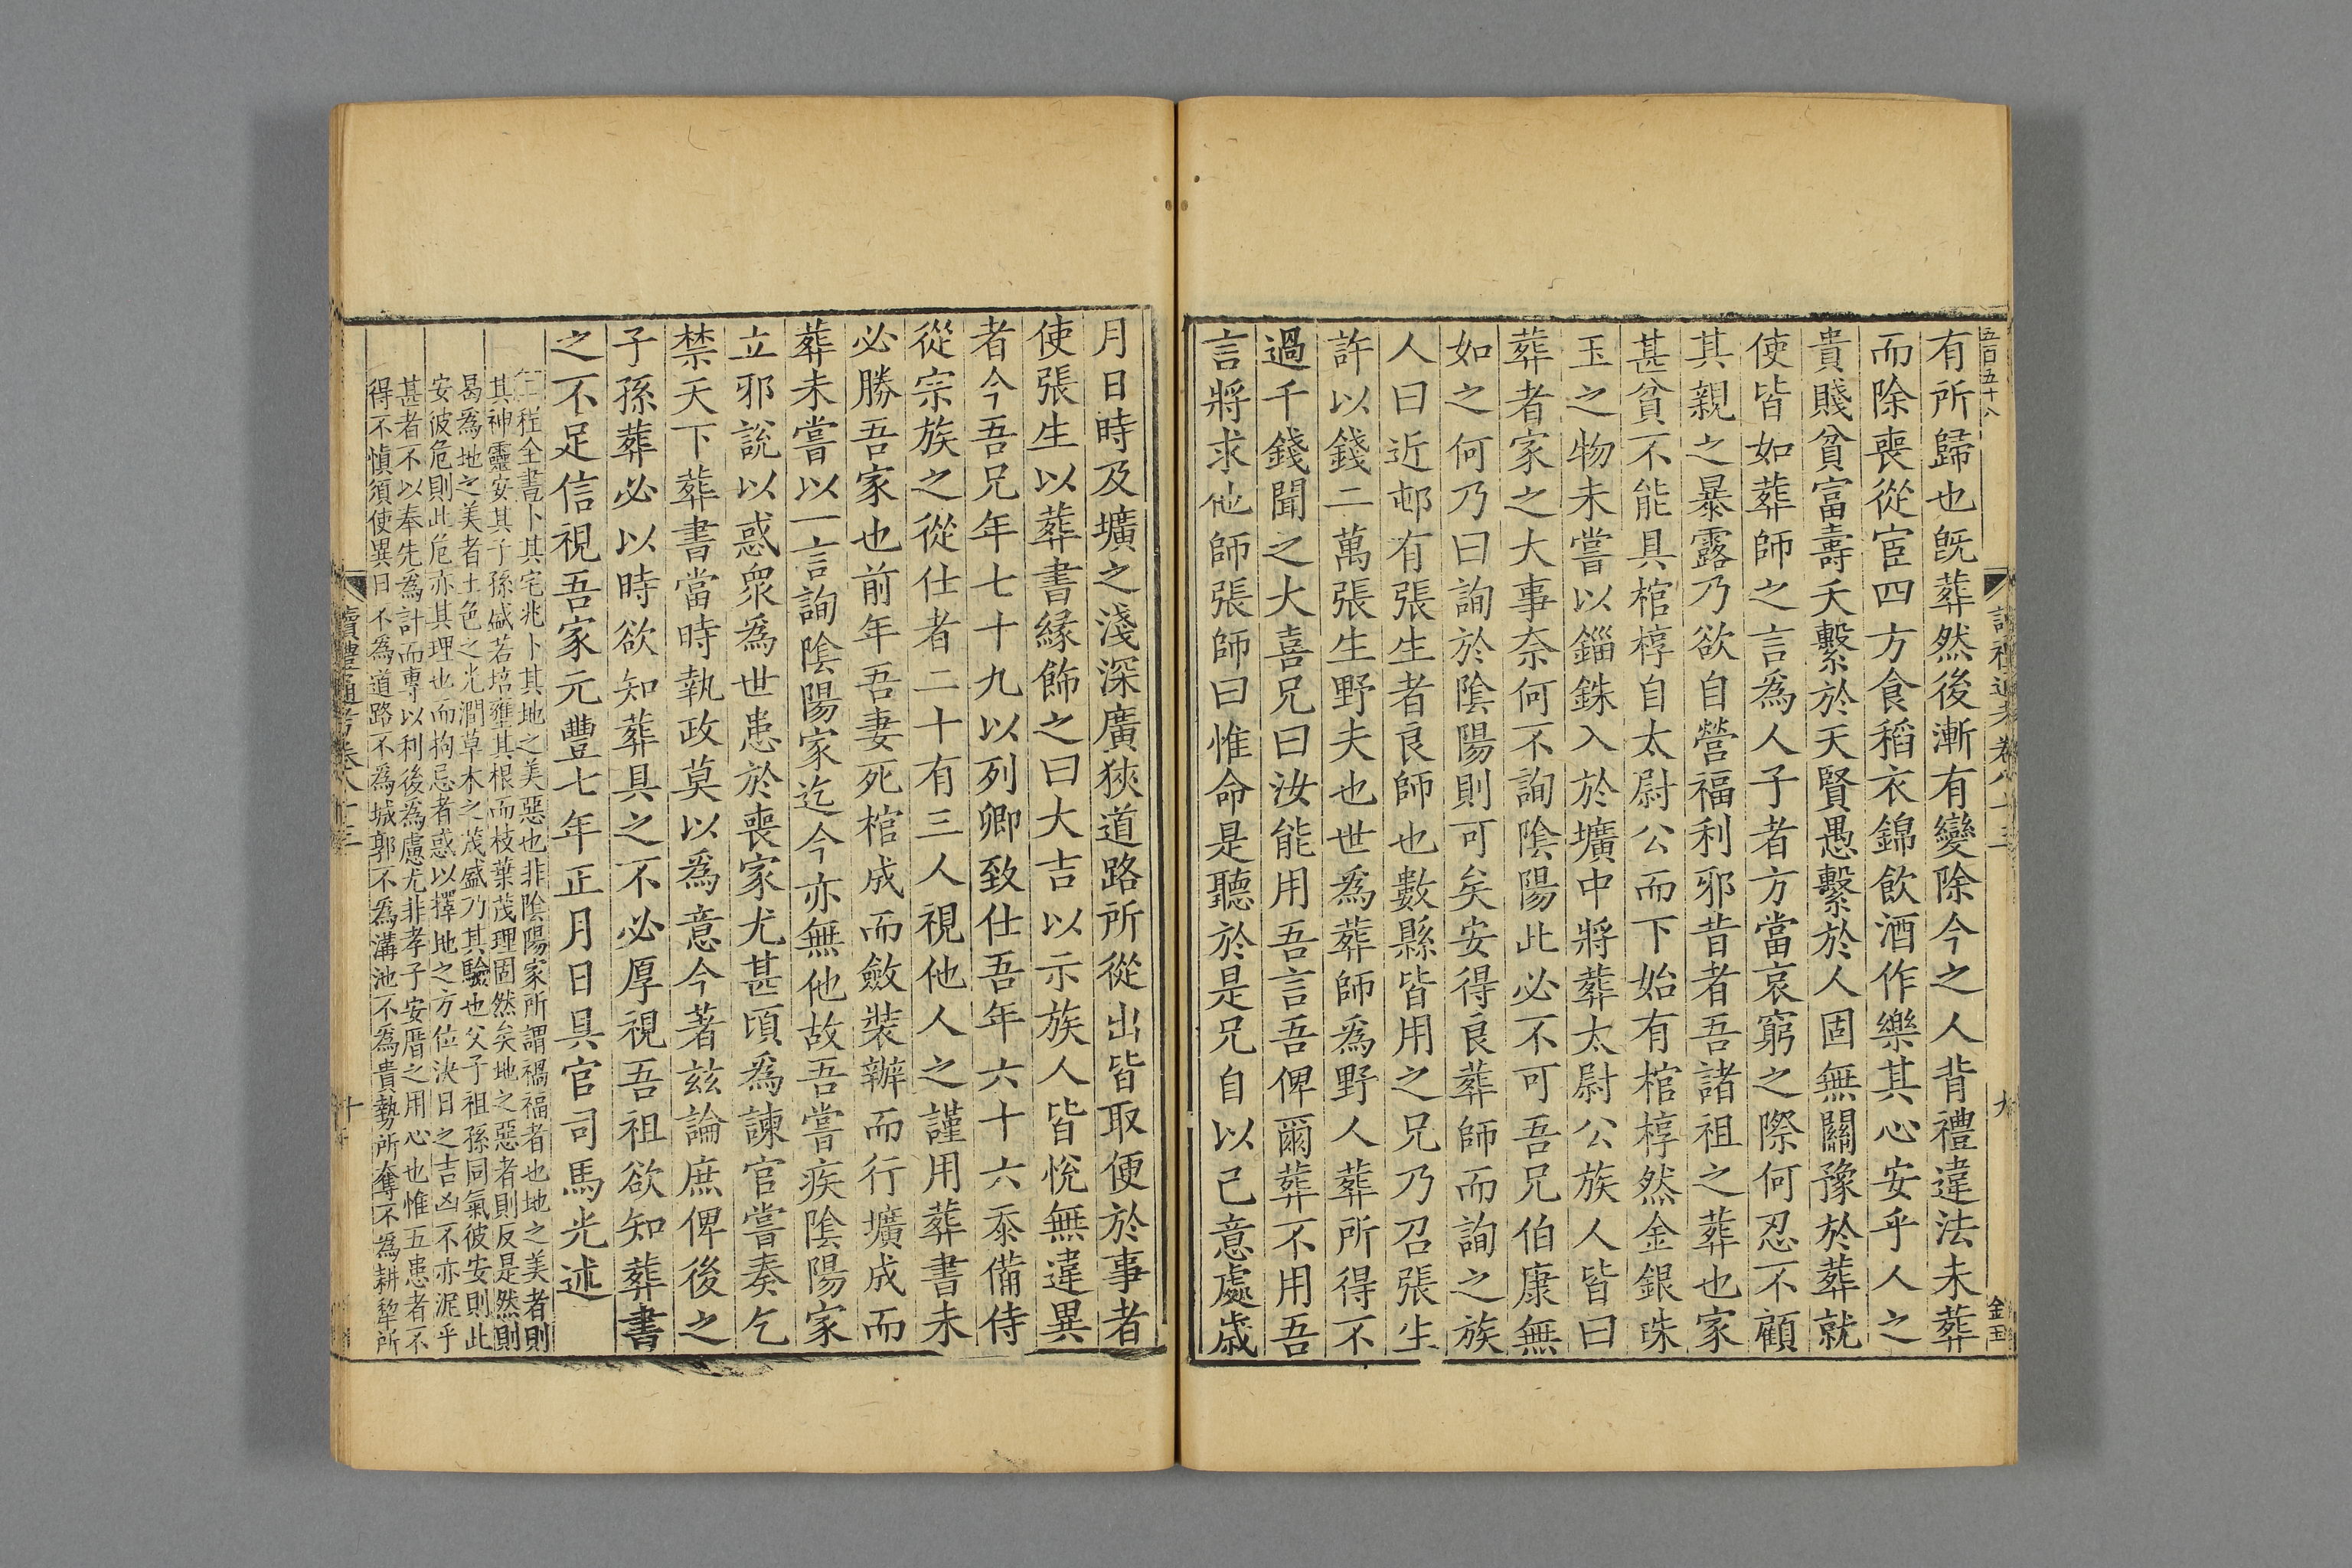 五百五十八
讀禮通考卷八十三
九
金玉
有所歸也旣葬然後漸有變除今之人背禮違法未葬
而除喪從宦四方食稻衣錦飲酒作樂其心安乎人之
貴賤貧富壽夭繫於天賢愚繫於人固無關豫於葬就
使皆如葬師之言為人子者方當哀窮之際何忍不顧
其親之暴露乃欲自營福利邪昔者吾諸祖之葬也家
甚貧不能具棺椁自太尉公而下始有棺椁然金銀珠
玉之物未嘗以錙銖入於壙中將葬太尉公族人皆曰
葬者家之大事奈何不詢陰陽此必不可吾兄伯康無
如之何乃曰詢於陰陽則可矣安得良葬師而詢之族
人曰近邨有張生者良師也數縣皆用之兄乃召張生
許以錢二萬張生野夫也世爲葬師爲野人葬所得不
過千錢聞之大喜兄曰汝能用吾言吾俾爾葬不用吾
言將求他師張師曰惟命是聽於是兄自以己意處歲
月日時及壙之淺深廣狹道路所從出皆取便於事者
使張生以葬書緣飾之曰大吉以示族人皆悅無違異
者今吾兄年七十九以列卿致仕吾年六十六忝備侍
從宗族之從仕者二十有三人視他人之謹用葬書未
必勝吾家也前年吾妻死棺成而斂裝辦而行壙成而
葬未嘗以一言詢陰陽家迄今亦無他故吾嘗疾陰陽家
立邪說以惑衆爲世患於喪家尤甚頃爲諫官嘗奏乞
禁天下葬書當時執政莫以爲意今著兹論庶俾後之
子孫葬必以時欲知葬具之不必厚視吾祖欲知葬書
之不足信視吾家元豐七年正月日具官司馬光述
二程全書卜其宅兆卜其地之美惡也非陰陽家所謂禍福者也地之美者則
其神靈安其子孫盛若培壅其根而枝葉茂理固然矣地之惡者則反是然則
曷爲地之美者土色之光潤草木之茂盛乃其驗也父子祖孫同氣彼安則此
安彼危則此危亦其理也而拘忌者惑以擇地之方位決日之吉凶不亦泥乎
甚者不以奉先爲計而專以利後為慮尤非孝子安厝之用心也惟五患者不
得不愼須使異日不為道路不為城郭不爲溝池不為貴勢所奪不爲耕犂所
讀禮通考卷八十三
十